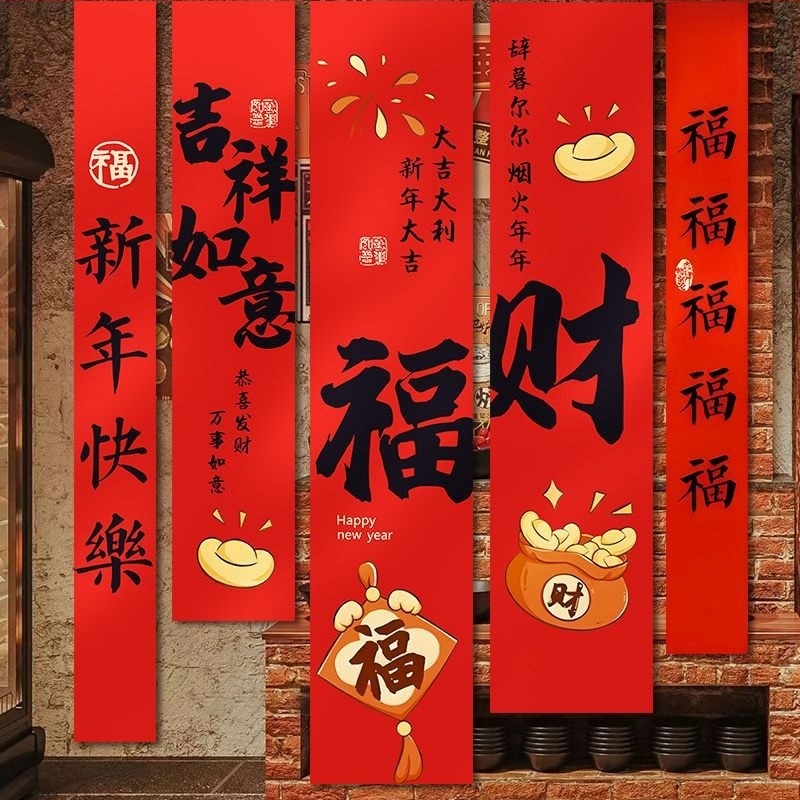 福
新年快樂
吉祥如意
恭喜发财
万事如意
大吉大利
新年大吉
福
Happy
new year
福
辞暮尔尔 烟火年年
财
财
福
福
福
福
福